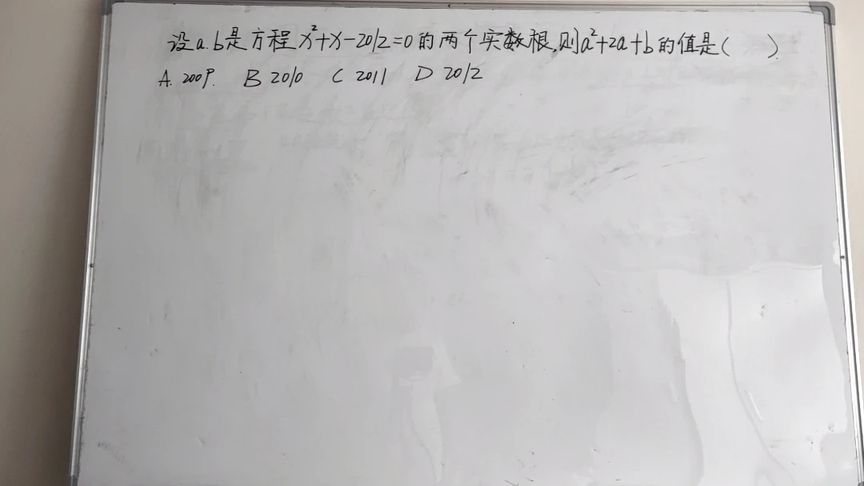 设a.b是方程x²+x-2012=0的两个实数根,则a²+2a+b的值是( ).
A. 2009. B 2010 C 2011 D 2012